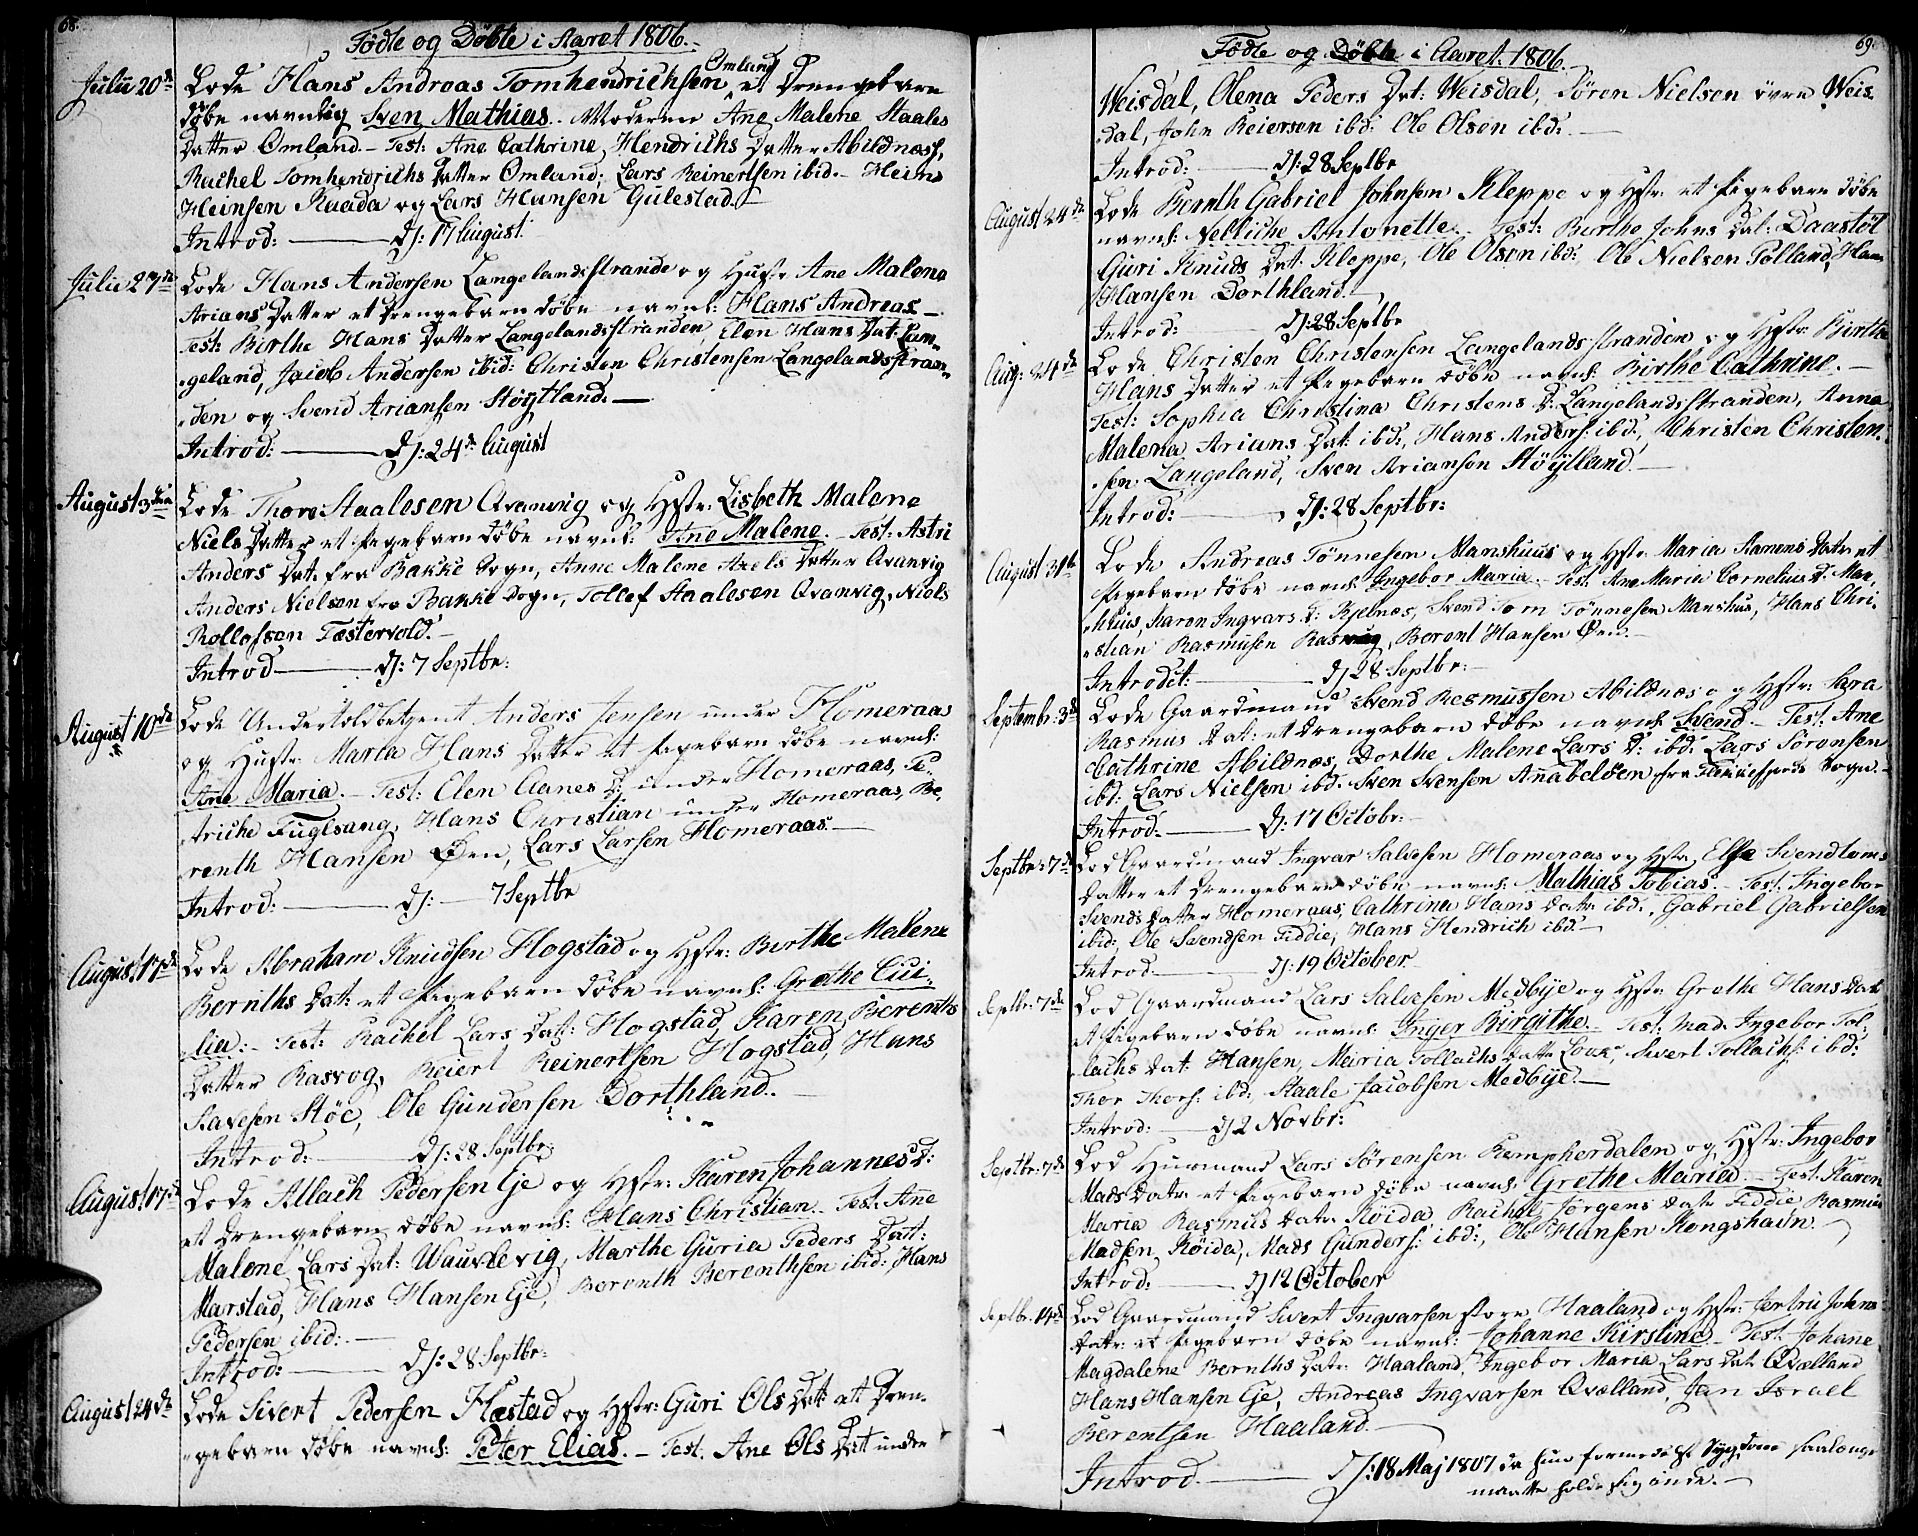 68.
Födte og Döbte i Aaret 1806.
Julii 20de Lode Hans Andreas Tomhendrichsen Omland et Drengebarn
döbe navnlig Sven Mathias. Moderen Ane Malene Staales
Datter Omland. - Test: Ane Cathrine Hendrichs Datter Abildnæss,
Rachel Tomhendrichs Datter Omland, Lars Reinertsen ibid. - Heins
Heinsen Raada og Lars Hansen Gulestad.
Introd: D: 17 August.
Julii 27de Lode Hans Andersen Langelandsstrande og Hustr Ane Malena
Arians Datter et Drengebarn döbe navnl: Hans Andreas -
Test: Birthe Hans Datter Langelandsstranden, Elen Hans Dat: Lan-
geland, Jacob Andersen ibid: Christen Christensen Langelandsstran-
den og Svend Ariansen Höytland. -
Introd: D: 24de August
August 3die Lode Thore Staalesen Qvanvig og Hstr: Lisbeth Malene
Niels Datter et Pigebarn döbe navnl: Ane Malene. - Test: Astri
Anders Dat. fra Bakke Sogn, Anne Malene Axels Datter Qvanvig
Anders Nielsen fra Bakke Sogn, Tollef Staalesen Qvanvig, Niels
Rollofsen Fæstervold. -
Introd D: 7 Septbr:
August 10de Lode Undertoldbetient Anders Jensen under Homeraas
og Hustr: Maria Hans Datter et Pigebarn döbe navnl:
Ane Maria. - Test: Elen Aanes D: under Homeraas, Pe-
triche Fuglsang, Hans Christian under Homeraas, Be-
renth Hansen Öen, Lars Larsen Homeraas. -
Introd: D: 7 Septbr
August 17de Lode Abraham Knudsen Hogstad og Hstr: Birthe Malene
Bernths Dat: et Pigebarn döbe navnl: Grethe Cici-
lia: - Test: Rachel Lars Dat: Hogstad, Karen Berenths
Datter Rasvog, Reiert Reinertsen Hogstad, Hans
Savesen Stöe, Ole Gundersen Dorthland.
Introd: D: 28 Septbr:
August 17de Lode Allach Pedersen Eje og Hstr: Karen Johannes D:
et Drengebarn döbe navnl: Hans Christian. Test: Ane
Malene Lars Dat: Waurlevig, Marthe Guria Peders Datt:
Marstad, Hans Hansen Eje, Berenth Berenthsen ibid: Hans
Pedersen ibid: -
Introd: D: 28 Septbr:
August 24de Lode Sivert Pedersen Flæstad og Hstr: Guri Ols Datt et Dren-
gebarn döbe navnl: Peter Elias. - Test. Ane Ols Datt under
69.
Födte og Döbte i Aaret 1806.
Weisdal, Olena Peders Dat: Weisdal, Sören Nielsen övre Weis-
dal, John Reiersen ibd: Ole Olsen ibd:
Introd: D: 28 Septbr
August 24de Lode Bernth Gabriel Johnsen Kleppe og Hstr: et Pigebarn döbe
navnl: Nelliche Antonette. Test: Birthe Johns Dat: Daastöl
Guri Knuds Dat: Kleppe, Ole Olsen ibd: Ole Nielsen Polland, Hans
Hansen Dorthland.
Introd: D: 28 Septbr
Aug: 24de Lode Christen Christensen Langelandsstranden og Hstr: Birthe
Hans Datter et Pigebarn döbe navnl: Birthe Cathrine. -
Test: Sophia Christina Christens D: Langelandsstranden, Anna
Malena Arians Dat: ibd:, Hans Anders: ibd:, Christen Christen-
sen Langeland, Sven Ariansen Höytland. -
Introd: D: 28 Septbr:
August 31te Lode Andreas Tönnesen Manshuus og Hstr: Maria Aamens Datr et
Pigebarn döbe navnl: Ingebor Maria. Test. Ane Maria Cornelius D: Man-
shuus, Karen Ingvars D: Kjelnes, Svend Tom Tönnesen Manshus, Hans Chri-
stian Rasmusen Rasvaag, Berent Hansen Öen -
Introdct: D 28 Septbr: -
Septembr: 3de Lode Gaardmand Svend Rasmussen Abildnæs og Hstr: Sara
Rasmus Dat: et Drengebarn döbe navnl: Svend. - Test: Ane
Cathrine Abildnæs, Dorthe Malene Lars D: ibd: Lars Sörensen
ibd: Lars Nielsen ibd. Sven Svensen Anabelöen fra Flekkefjords Sogn. -
Introd: D: 17 Octobr: -
Septbr: 7de Lod Gaardmand Ingvar Salvesen Homeraas og Hstr. Else Svendtoms
Datter et Drengebarn döbe navnl: Mathias Tobias. - Test. Ingebor
Svends Datter Homeraas, Cathrina Hans Datr: ibd:, Gabriel Gabrielsen
ibid; Ole Svendsen Fiddie, Hans Hendrich ibd: -
Introd: D: 19 October
Septbr: 7de Lod Gaardmand Lars Salvesen Medbye og Hstr. Grethe Hans Datr
et Pigebarn döbe navnl: Inger Birgithe. - Test: Mad. Ingebor Tol-
lachs Dat. Hansen, Maria Tollachs Datt Loux, Sivert Tollachs: ibd:
Thor Thors: ibd: Staale Jacobsen Medbye. -
Introd: D 2 Novbr:
Septbr: 7de Lod Huusmand Lars Sörensen Kempherdalen og Hstr: Ingebor
Mads Datr: et Pigebarn döbe navnl: Grethe Maria. - Test. Karen
Maria Rasmus Datr Röida, Rachel Jörgens Datr Fiddie, Rasmus
Madsen Röida, Mads Gunders: ibd:, Ole Hansen Kongshavn. -
Introd: D 12 October
Septbr. 14de Lod Gaardmand Sivert Ingvarsen store Haaland og Hstr: Jertru Johns
Datr: et Pigebarn döbe navnl: Johanne Kirstine - Test. Johane
Magdalene Bernths Datr: Haaland, Ingebor Maria Lars Dat Qvælland
Hans Hansen Eje, Andreas Ingvarsen Qvælland, Jan Israel
Berentsen Haaland. -
Introd. D: 18 Maj 1807 da hun formedelst Sygdom saalænge
maatte holde sig inde. -